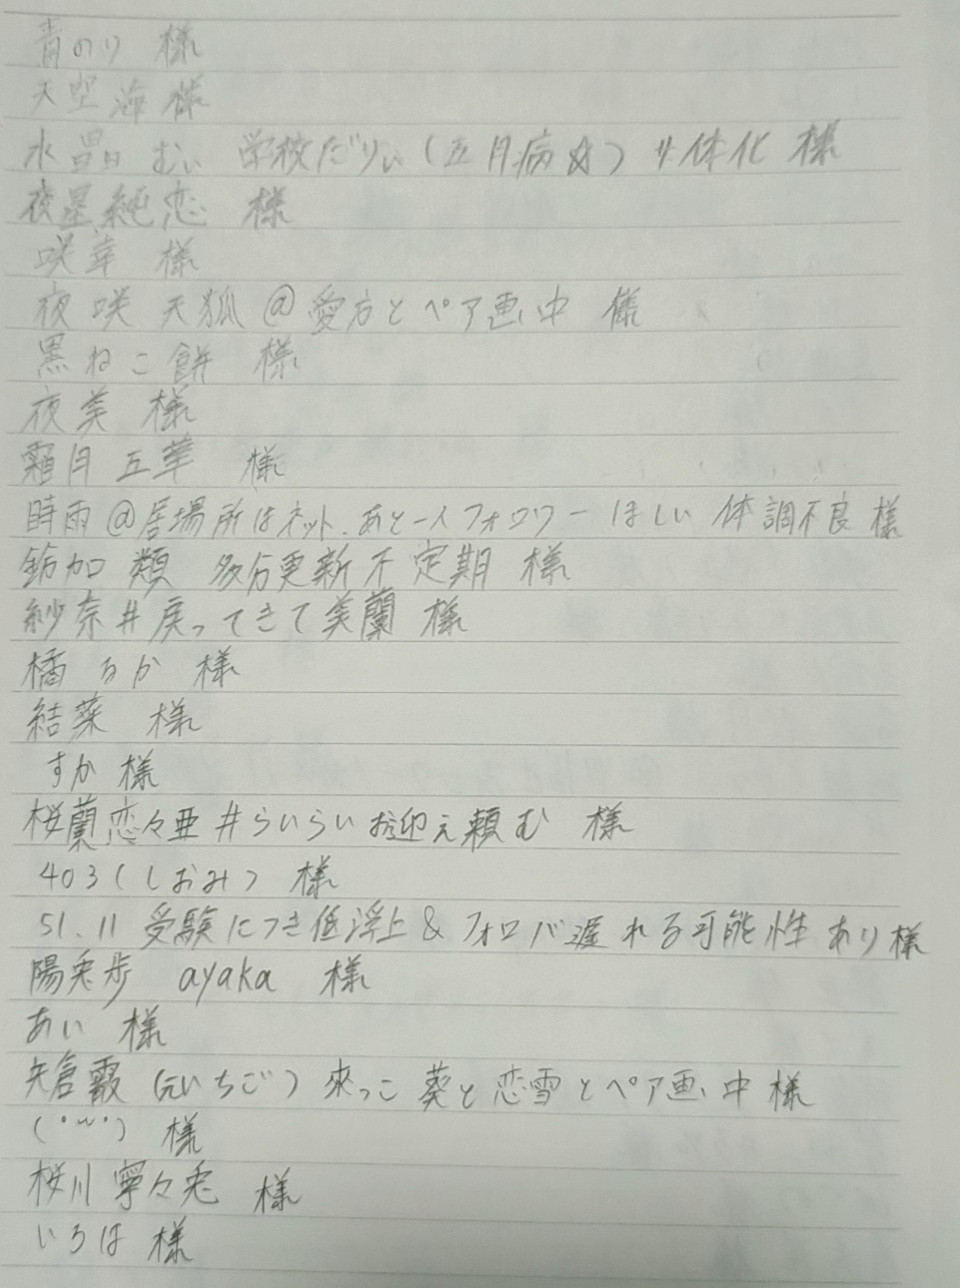 青のり 様
天空海 様
水晶 むい 学校だりぃ(五月病☆) 廾体化 様
夜星純恋 様
咲幸 様
夜咲 天狐@愛方とペア画中 様
黒ねこ餅 様
夜美 様
霜月 五華 様
時雨@居場所はネット.あと一人フォロワーほしい 体調不良 様
鈴加 類 多分更新不定期 様
紗奈#戻ってきて美蘭 様
橘 るか 様
結菜 様
すか 様
桜蘭恋々亜#らいらいお迎え頼む 様
403(しおみ) 様
51.11 受験につき低浮上&フォロバ遅れる可能性あり様
陽兎歩 ayaka 様
あい 様
矢倉霰(元いちご)來っこ 葵と恋雪とペア画中 様
(°ᐞ°) 様
桜川 寧々兎 様
いろは 様